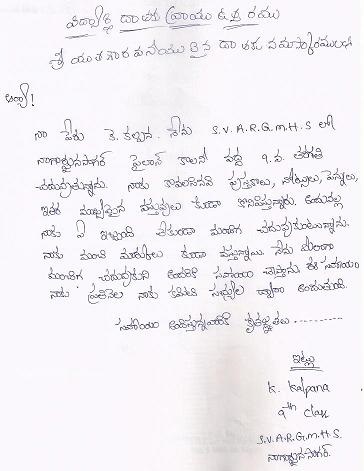 దాతకు వ్రాయు ఉత్తరము
శ్రీ దాతకు నమస్కారములు
ఆర్యా!
నా పేరు కె. కల్పన. నేను S.V.A.R.G.M.H.S లో
నాగార్జునసాగర్ పైలాన్ కాలనీ వద్ద 9.వ. తరగతి
చదువుతున్నాను. నాకు కావలసిన పుస్తకాలు, నోట్సులు, పెన్నులు,
ఇతర ముఖ్యమైన వస్తువులు కూడా అందువల్ల
నాకు ఏ ఇబ్బంది లేకుండా మంచిగ చదువుకుంటున్నాను.
నాకు మంచి మార్కులు కూడా వస్తున్నాయి. నేను ఇంకా
మంచిగ చదువుకుని అందరికి సహాయం చేస్తాను. ఈ సహాయం
నాకు ప్రతినెల నాకు ద్వారా అందుతుంది.
సహాయం కృతజ్ఞతలు
ఇట్లు
K. Kalpana
9th class
S.V.A.R.G.M.H.S.
నాగార్జునసాగర్.